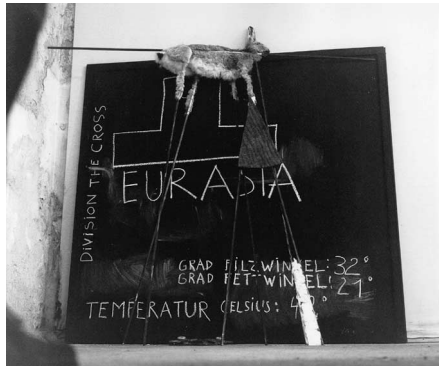 DIVISION THE CROSS
EURASIA
GRAD FILZWINKEL: 32°
GRAD FETTWINKEL: 21°
TEMPERATUR CELSIUS: